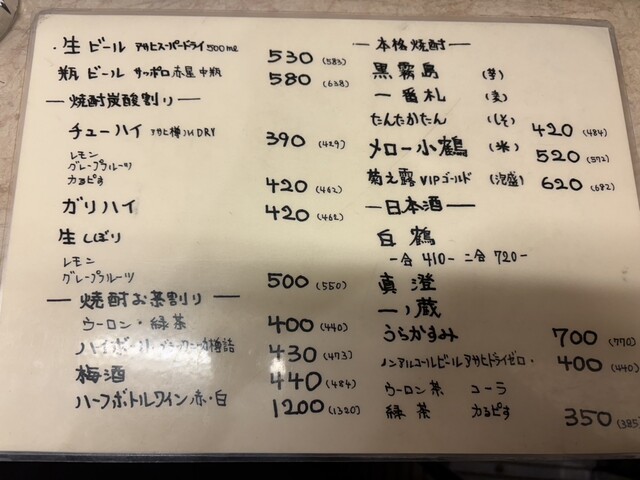 ・生ビール アサヒスーパードライ 500ml 530 (583)
瓶ビール サッポロ赤星 中瓶 580 (638)
― 焼酎炭酸割り ―
チューハイ アサヒ樽ハイDRY 390 (429)
レモン
グレープフルーツ
カルピす 420 (462)
ガリハイ 420 (462)
生しぼり
レモン
グレープフルーツ 500 (550)
― 焼酎お茶割り ―
ウーロン・緑茶 400 (440)
ハイボール 430 (473)
梅酒 440 (484)
ハーフボトルワイン赤・白 1200 (1320)
― 本格焼酎 ―
黒霧島 (芋)
一番札 (麦)
たんたかたん (しそ) 420 (484)
メロー小鶴 (米) 520 (572)
菊之露VIPゴールド (泡盛) 620 (682)
― 日本酒 ―
白鶴
一合 410- 二合 720-
真澄
一ノ蔵
うらがすみ 700 (770)
ノンアルコールビール アサヒドライゼロ・ 400 (440)
ウーロン茶 コーラ
緑茶 カルピす 350 (385)